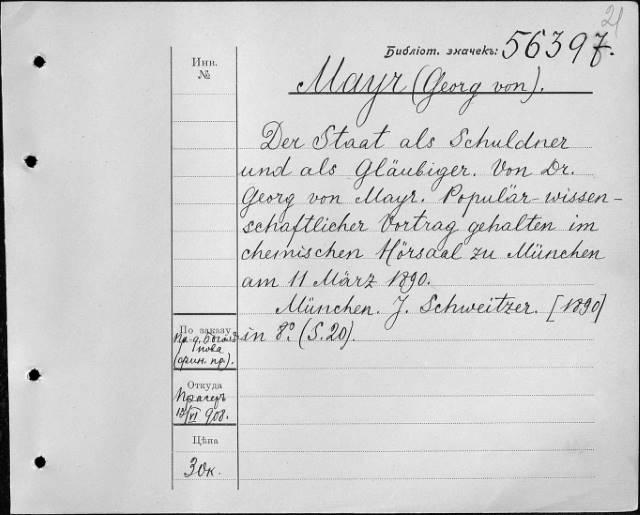 21
Библіот. значекъ: 56397.
Инв.
№
Mayr (Georg von).
Der Staat als Schuldner
und als Gläubiger. Von Dr.
Georg von Mayr. Populär-wissen-
schaftlicher Vortrag gehalten im
chemischen Hörsaal zu München
am 11 März 1890.
München. J. Schweitzer. [1890]
in 8°. (S. 20).
По заказу
(фин. пр.).
Откуда
Прагеръ
12/VI 908.
Цѣна
30к.